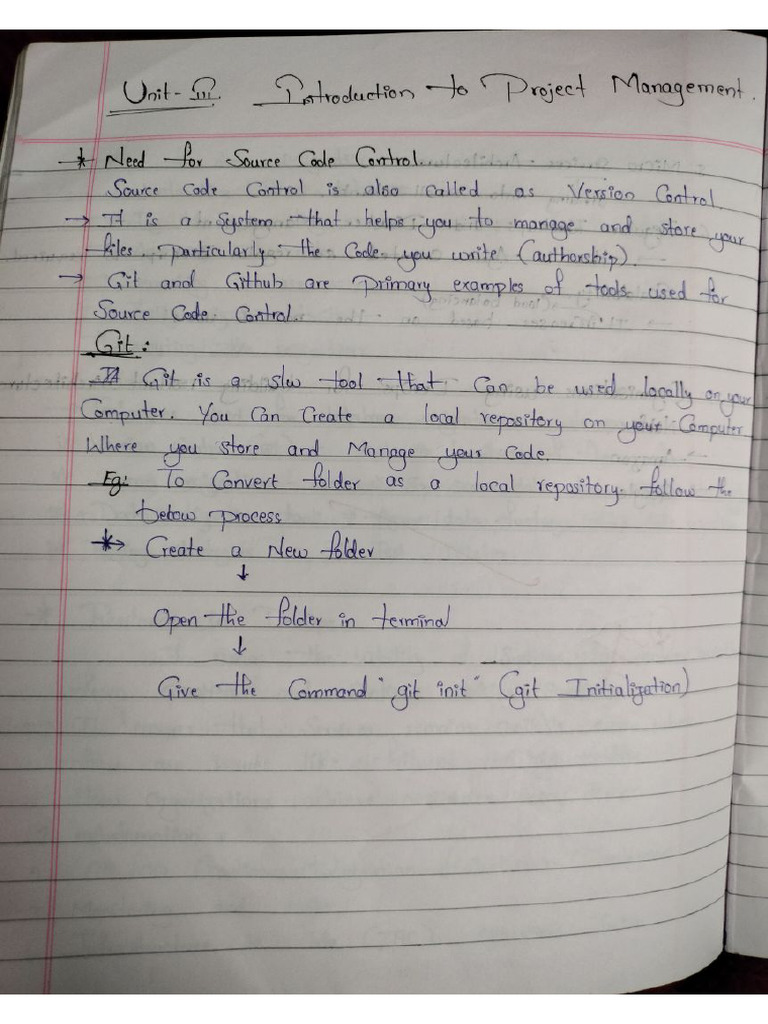 Unit-III. Introduction to Project Management.
* Need for Source Code Control.
Source Code Control is also called as Version Control.
→ It is a system that helps you to manage and store your
files particularly the Code you write (authorship).
→ Git and Github are primary examples of tools used for
Source Code Control.
Git:
Git is a s/w tool that Can be used locally on your
Computer. You Can Create a local repository on your Computer
Where you store and Manage your Code.
Eg: To Convert folder as a local repository follow the
below process
*→ Create a New folder
↓
Open the folder in terminal
↓
Give the Command "git init" (git Initialization)